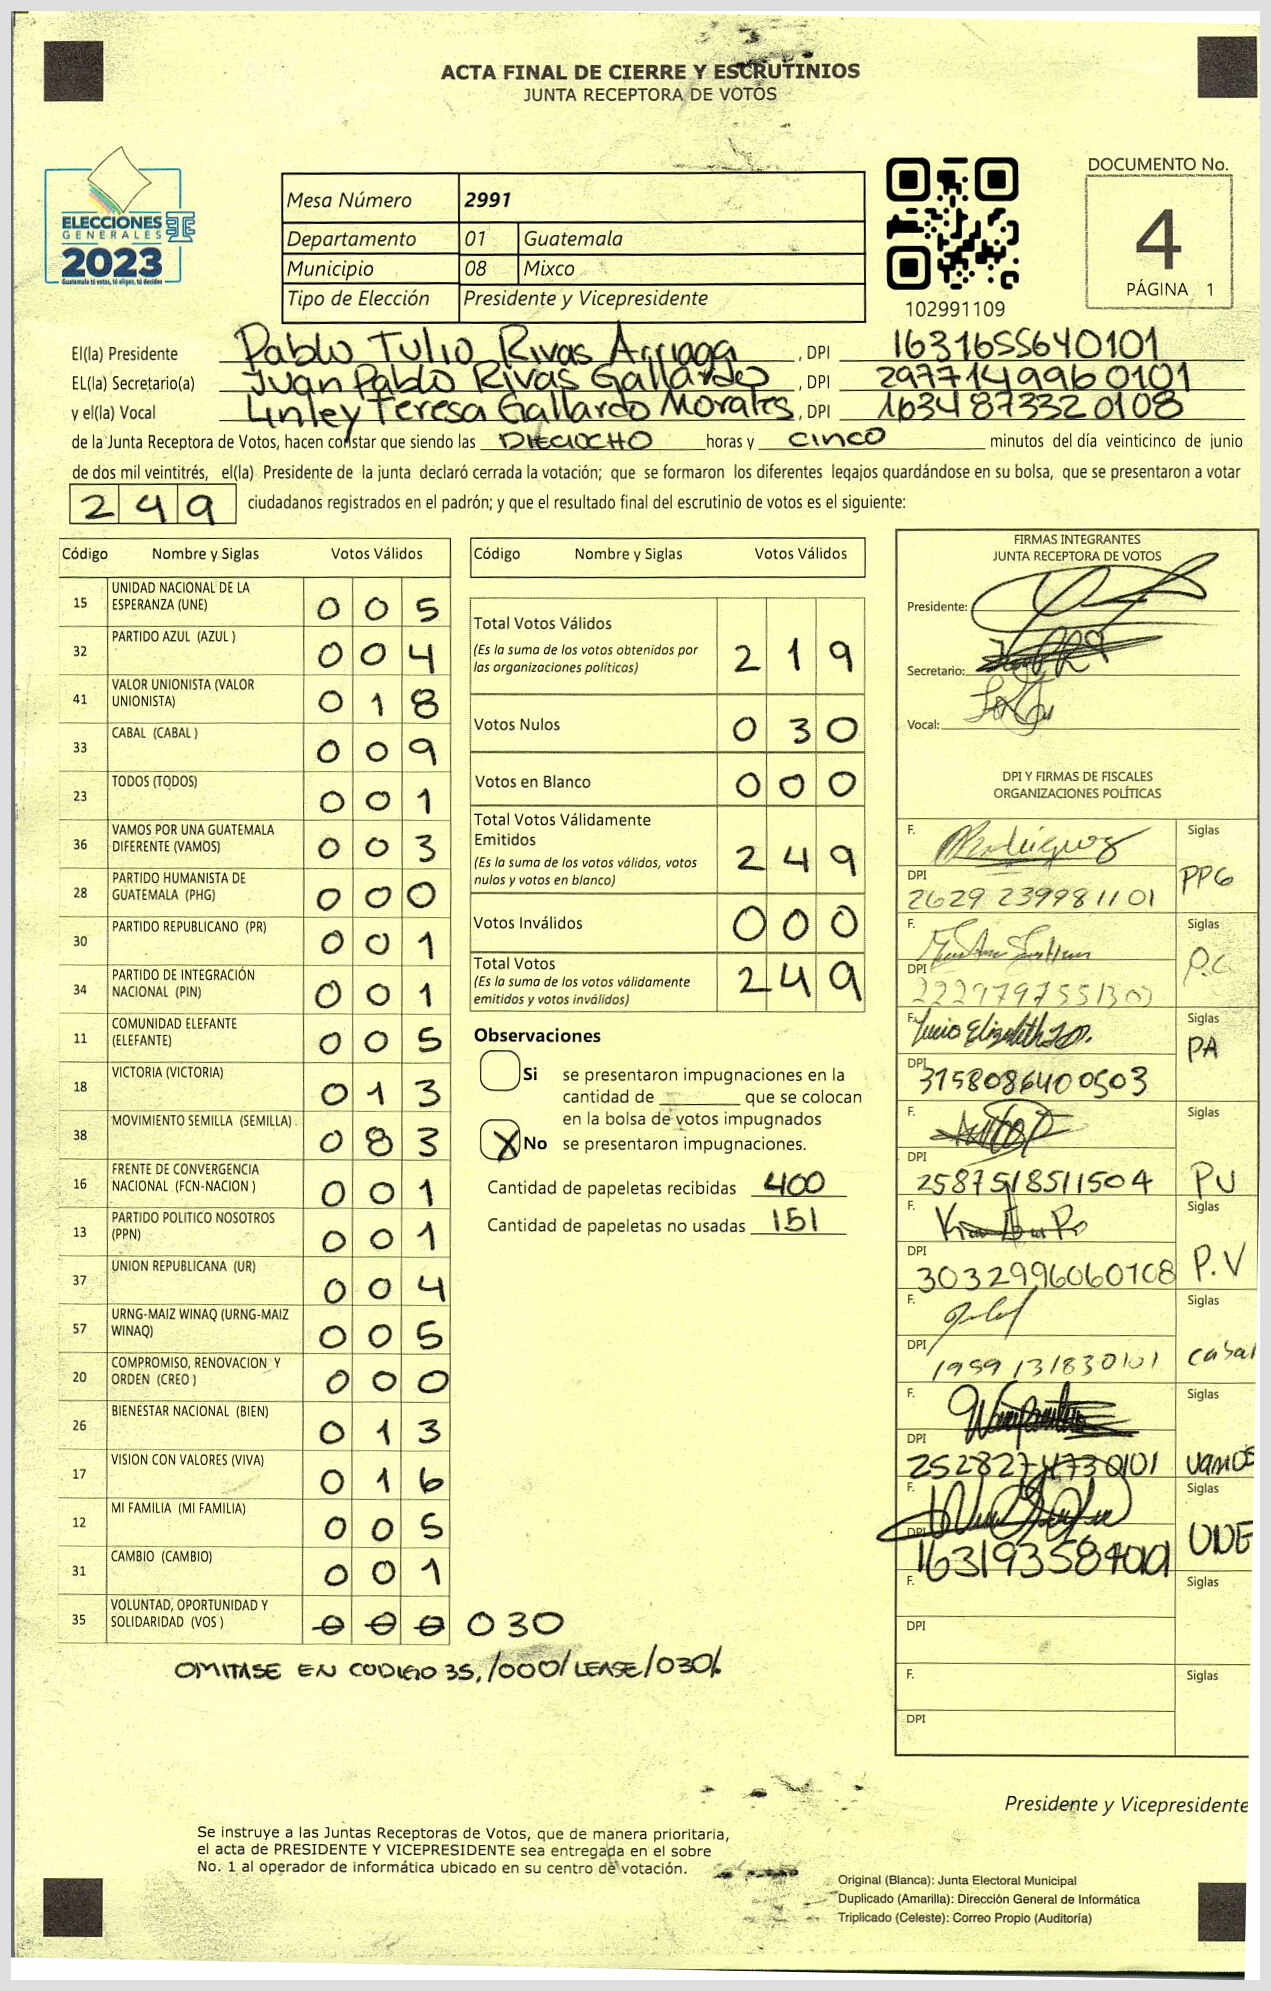 ACTA FINAL DE CIERRE Y ESCRUTINIOS
JUNTA RECEPTORA DE VOTOS
ELECCIONES
GENERALES
2023
Guatemala tú votas, tú eliges, tú decides
Mesa Número 2991
Departamento 01 Guatemala
Municipio 08 Mixco
Tipo de Elección Presidente y Vicepresidente
102991109
DOCUMENTO No.
4
PÁGINA 1
El(la) Presidente Pablo Tulio Rivas Arriaga, DPI 1631655640101
EL(la) Secretario(a) Juan Pablo Rivas Gallardo, DPI 2977149960101
y el(la) Vocal Linley Teresa Gallardo Morales, DPI 1634873320108
de la Junta Receptora de Votos, hacen constar que siendo las DIECIOCHO horas y CINCO minutos del día veinticinco de junio
de dos mil veintitrés, el(la) Presidente de la junta declaró cerrada la votación; que se formaron los diferentes legajos guardándose en su bolsa, que se presentaron a votar
249 ciudadanos registrados en el padrón; y que el resultado final del escrutinio de votos es el siguiente:
Código Nombre y Siglas Votos Válidos
15 UNIDAD NACIONAL DE LA ESPERANZA (UNE) 005
32 PARTIDO AZUL (AZUL ) 004
41 VALOR UNIONISTA (VALOR UNIONISTA) 018
33 CABAL (CABAL ) 009
23 TODOS (TODOS) 001
36 VAMOS POR UNA GUATEMALA DIFERENTE (VAMOS) 003
28 PARTIDO HUMANISTA DE GUATEMALA (PHG) 000
30 PARTIDO REPUBLICANO (PR) 001
34 PARTIDO DE INTEGRACIÓN NACIONAL (PIN) 001
11 COMUNIDAD ELEFANTE (ELEFANTE) 005
18 VICTORIA (VICTORIA) 013
38 MOVIMIENTO SEMILLA (SEMILLA) 083
16 FRENTE DE CONVERGENCIA NACIONAL (FCN-NACION ) 001
13 PARTIDO POLITICO NOSOTROS (PPN) 001
37 UNION REPUBLICANA (UR) 004
57 URNG-MAIZ WINAQ (URNG-MAIZ WINAQ) 005
20 COMPROMISO, RENOVACION Y ORDEN (CREO ) 000
26 BIENESTAR NACIONAL (BIEN) 013
17 VISION CON VALORES (VIVA) 016
12 MI FAMILIA (MI FAMILIA) 005
31 CAMBIO (CAMBIO) 001
35 VOLUNTAD, OPORTUNIDAD Y SOLIDARIDAD (VOS ) 000 030
OMITASE EN CODIGO 35, /000/ LEASE /030/.
Código Nombre y Siglas Votos Válidos
Total Votos Válidos 219
(Es la suma de los votos obtenidos por las organizaciones políticas)
Votos Nulos 030
Votos en Blanco 000
Total Votos Válidamente Emitidos 249
(Es la suma de los votos válidos, votos nulos y votos en blanco)
Votos Inválidos 000
Total Votos 249
(Es la suma de los votos válidamente emitidos y votos inválidos)
Observaciones
Si se presentaron impugnaciones en la
cantidad de ________ que se colocan
en la bolsa de votos impugnados
X No se presentaron impugnaciones.
Cantidad de papeletas recibidas 400
Cantidad de papeletas no usadas 151
FIRMAS INTEGRANTES
JUNTA RECEPTORA DE VOTOS
Presidente:
Secretario:
Vocal:
DPI Y FIRMAS DE FISCALES
ORGANIZACIONES POLÍTICAS
F. Rodriguez Siglas PPG
DPI 2629 23998 1101
F. Siglas P.G
DPI
F. Elizabeth Siglas PA
DPI 3158086400503
F. Siglas PU
DPI 2587518511504
F. Siglas P.V
DPI 3032996060108
F. Siglas cabal
DPI 1959 131830101
F. Siglas VAMOS
DPI 2528274730101
F. Siglas UNE
DPI
F. Siglas
DPI
F. Siglas
DPI
Presidente y Vicepresidente
Se instruye a las Juntas Receptoras de Votos, que de manera prioritaria,
el acta de PRESIDENTE Y VICEPRESIDENTE sea entregada en el sobre
No. 1 al operador de informática ubicado en su centro de votación.
Original (Blanca): Junta Electoral Municipal
Duplicado (Amarilla): Dirección General de Informática
Triplicado (Celeste): Correo Propio (Auditoría)